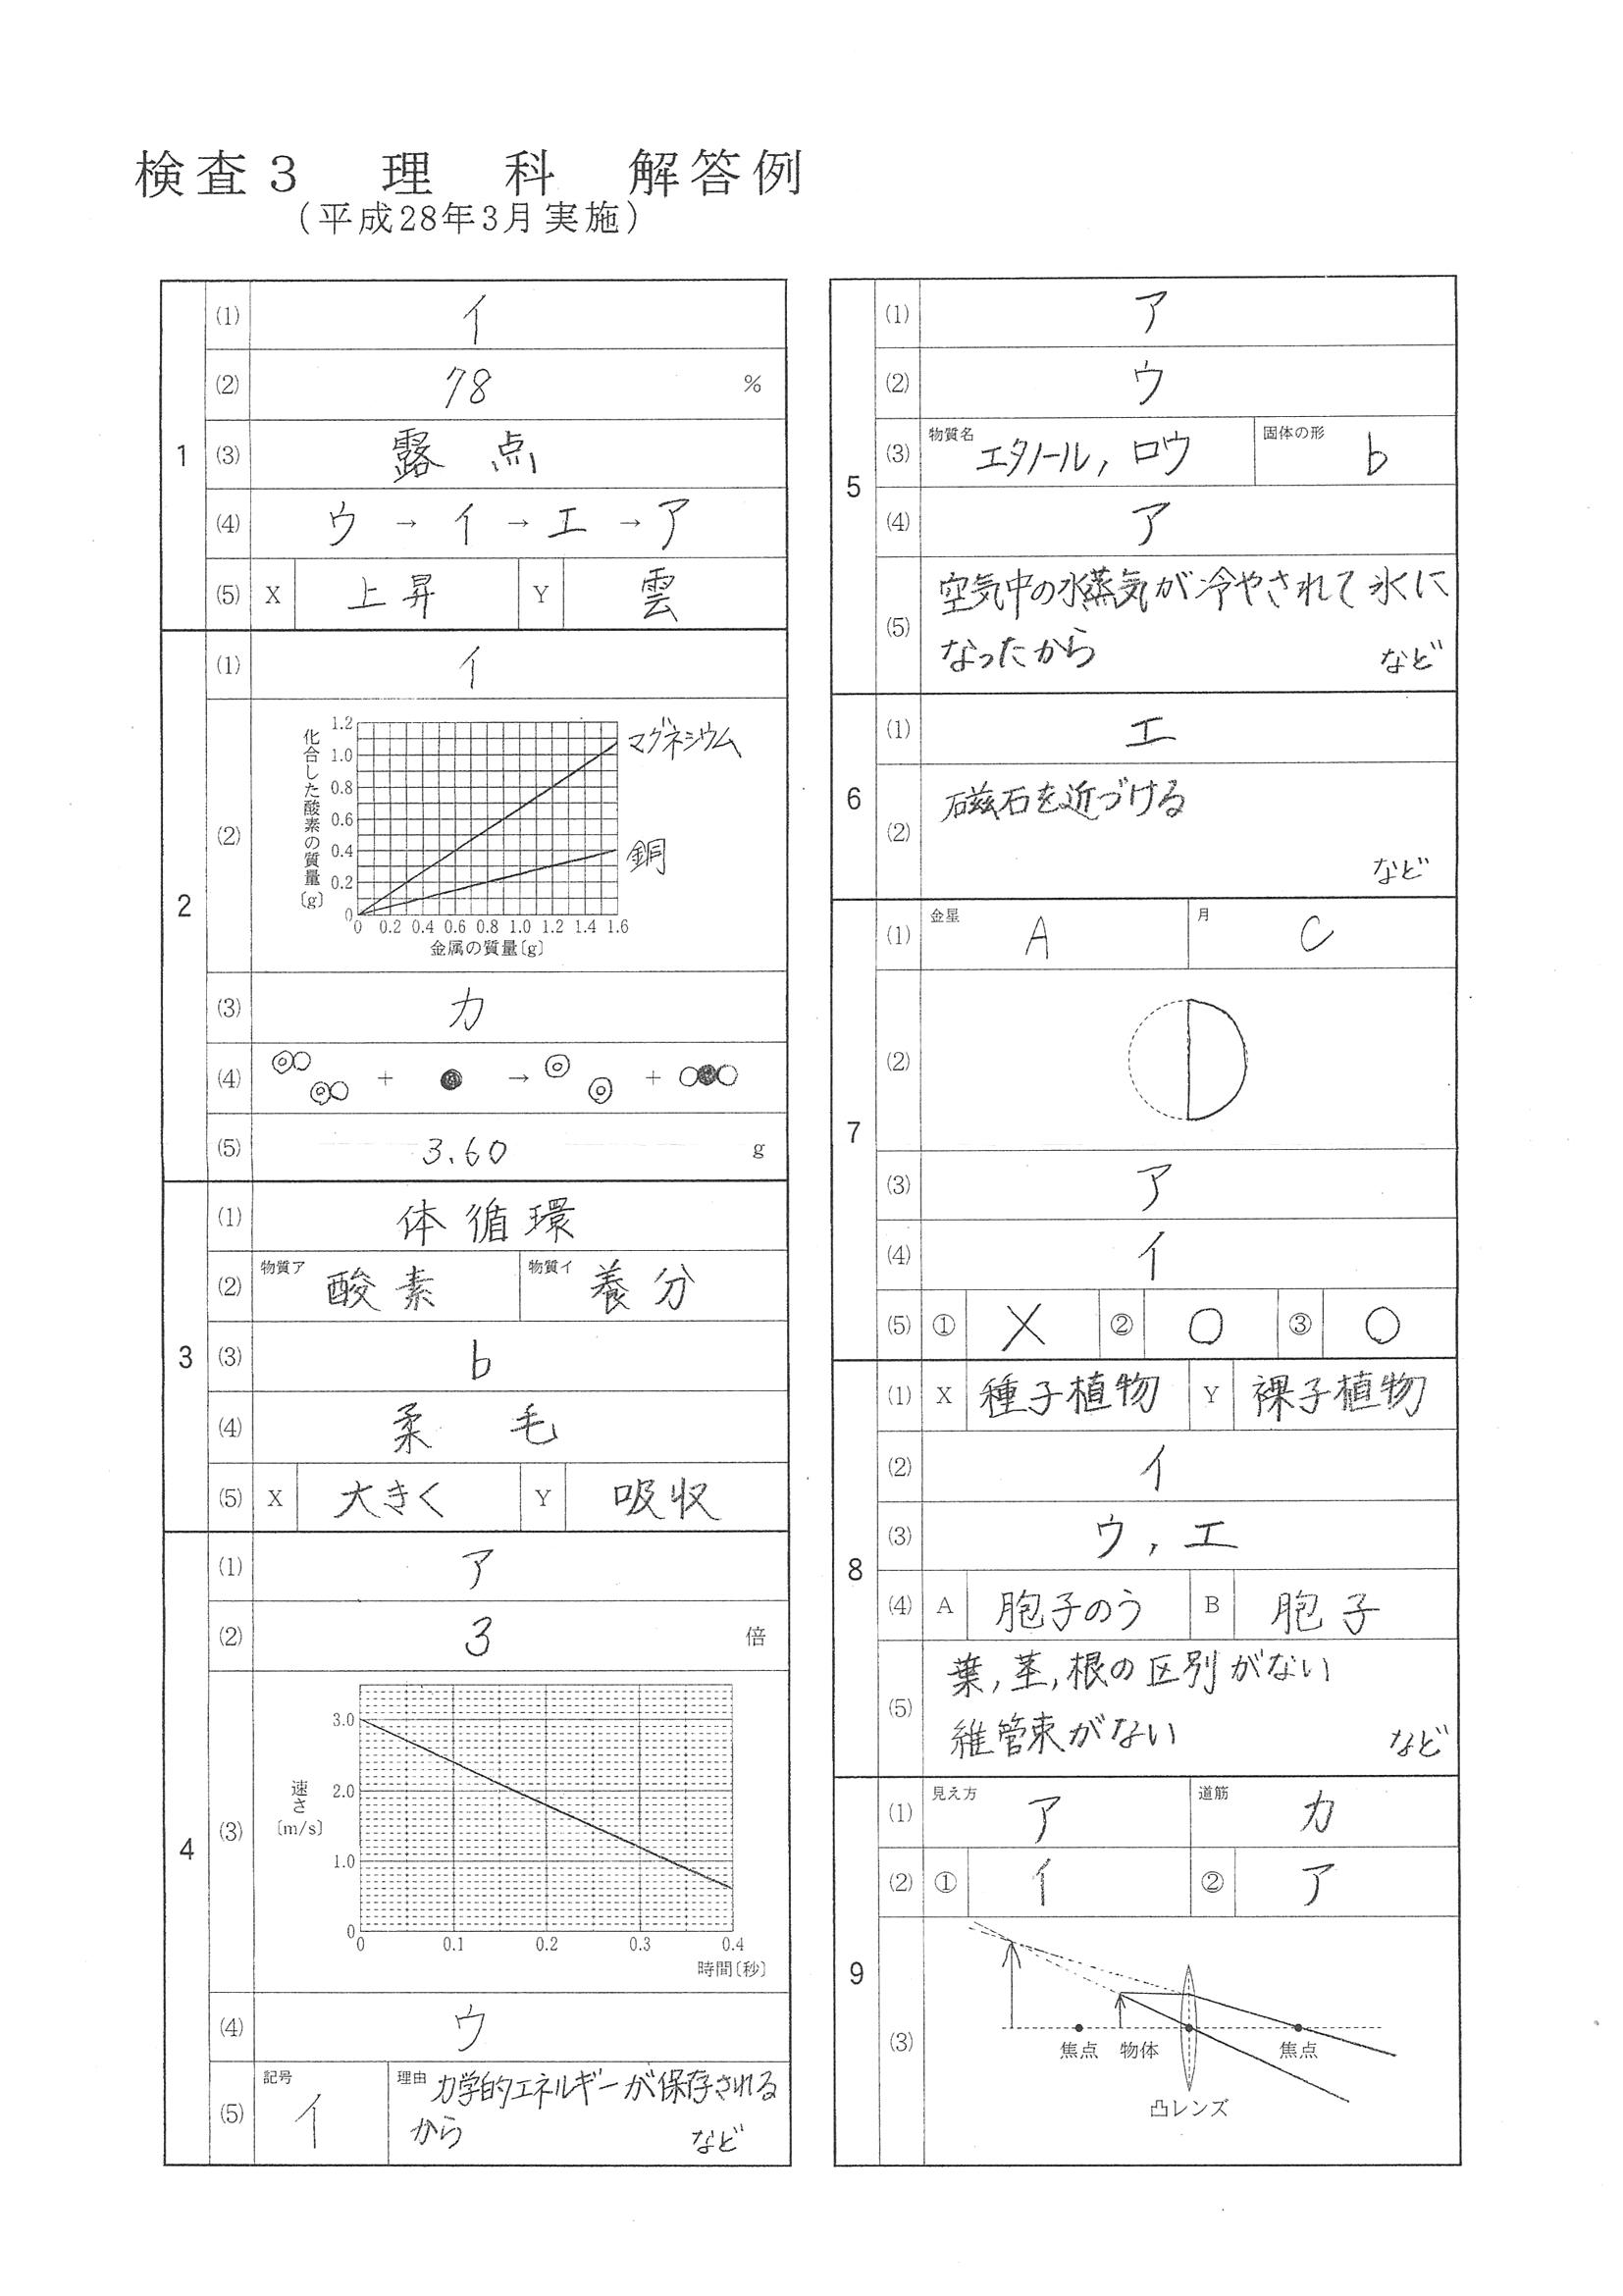 検査３　理　科　解答例
（平成28年3月実施）
1
(1) イ
(2) 78 %
(3) 露点
(4) ウ → イ → エ → ア
(5) X 上昇 Y 雲
2
(1) イ
(2)
化合した酸素の質量〔g〕
1.2
1.0
0.8
0.6
0.4
0.2
0
マグネシウム
銅
0 0.2 0.4 0.6 0.8 1.0 1.2 1.4 1.6
金属の質量〔g〕
(3) カ
(4) ◎○ ◎○ + ● → ◎ ◎ + ○●○
(5) 3.60 g
3
(1) 体循環
(2) 物質ア 酸素 物質イ 養分
(3) b
(4) 柔毛
(5) X 大きく Y 吸収
4
(1) ア
(2) 3 倍
(3)
速さ〔m/s〕
3.0
2.0
1.0
0
0 0.1 0.2 0.3 0.4
時間〔秒〕
(4) ウ
(5) 記号 イ 理由 力学的エネルギーが保存される
から など
5
(1) ア
(2) ウ
(3) 物質名 エタノール, ロウ 固体の形 b
(4) ア
(5) 空気中の水蒸気が冷やされて氷に
なったから など
6
(1) エ
(2) 磁石を近づける
など
7
(1) 金星 A 月 C
(2)
(3) ア
(4) イ
(5) ① × ② ○ ③ ○
8
(1) X 種子植物 Y 裸子植物
(2) イ
(3) ウ, エ
(4) A 胞子のう B 胞子
(5) 葉, 茎, 根の区別がない
維管束がない など
9
(1) 見え方 ア 道筋 カ
(2) ① イ ② ア
(3)
焦点 物体 焦点
凸レンズ